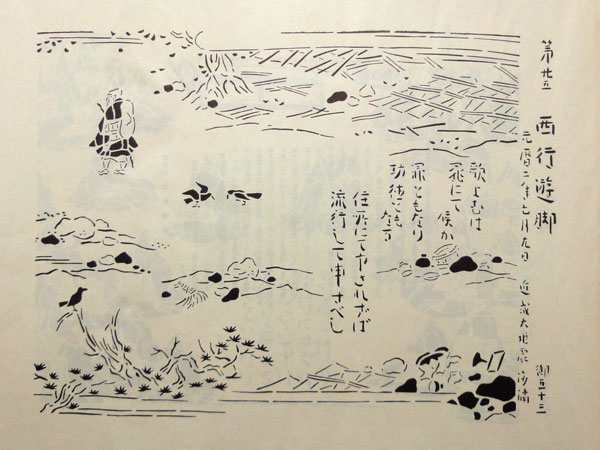 第廿五 西行遊脚
元暦二年七月九日 近域大地震沙漏 御五十三
歌よむは
罪にて候か
罪ともなり
功徳とも
なる
住所にて下されざば
流行して申さべし